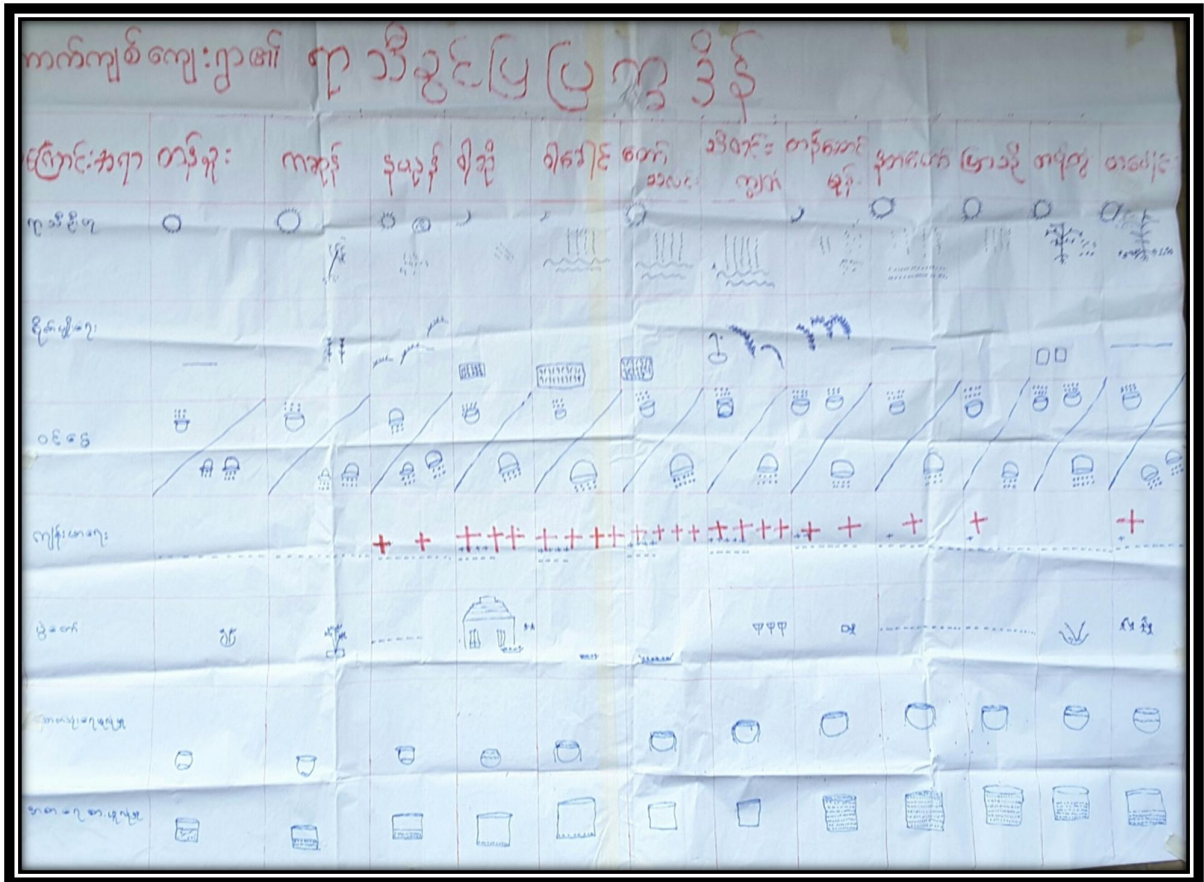 ကက်ကျစ်ကျေးရွာ၏ ရာသီခွင်ပြ ပြက္ခဒိန်
အကြောင်းအရာ တန်ခူး ကဆုန် နယုန် ဝါဆို ဝါခေါင် တော်သလင်း သီတင်းကျွတ် တန်ဆောင်မုန်း နတ်တော် ပြာသို တပို့တွဲ တပေါင်း
ရာသီဥတု
စိုက်ပျိုးရေး
ဝင်ငွေ
ကျန်းမာရေး
ပွဲတော်